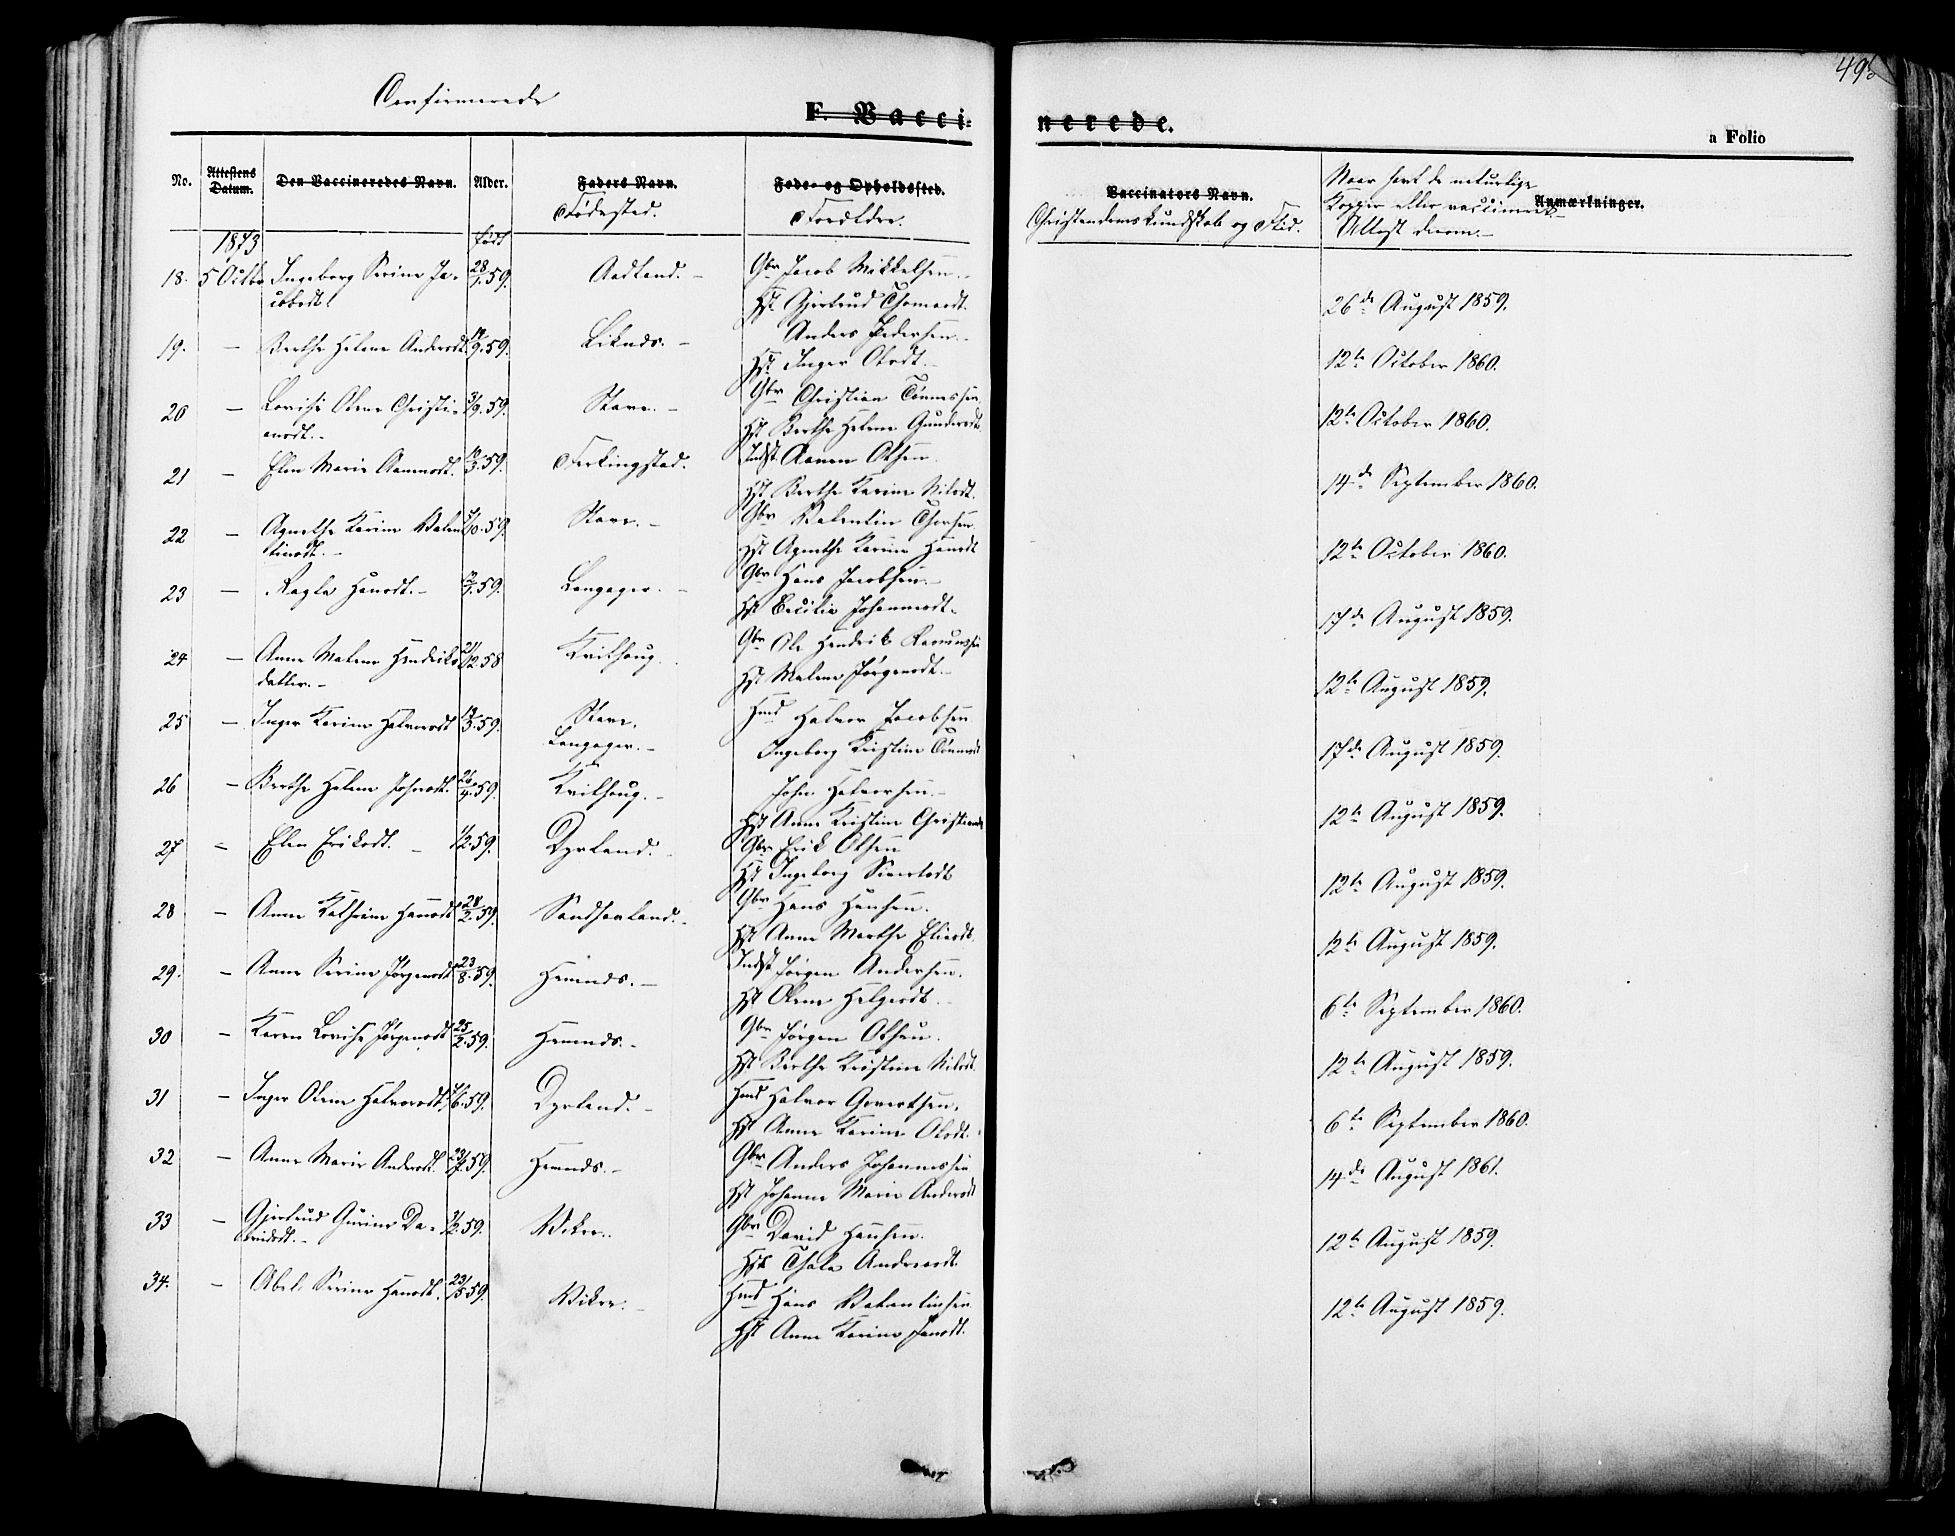 495
Confirmerede
F. Vacci-
nerede.
a Folio
No.
Attestens Datum.
Den Vaccineredes Navn.
Alder.
Faders Navn.
Fødested.
Føde- og Opholdssted.
Forældre.
Vaccinators Navn.
Christendomskundskab og Flid.
Anmærkninger.
Naar havt de naturlige
Kopper eller vaccinerede
Attest derom.-
1873
født
18. 5 Octbr Ingeborg Serine Ja- 28/1.59. Aadland. - Gbr Jacob Mikkelsen.-
cobsdt Hst Gjertrud Thomasdt. 26de August 1859.
19. - Berthe Helene Andersdt. 14/9.59. Liknæs. - Anders Pedersen.-
Hst Inger Olsdt.- 12te October 1860.
20 - Lovise Olene Christi- 3/9.59. Stave. - Gbr Christian Tønnessen
ansdt.- Hst Berthe Helene Gundersdt. 12te October 1860.
21 - Elen Marie Aanensdt. 14/3.59. Ferkingstad. Indst Aanen Olsen.
Hst Berthe Karine Nilsdt. 14de September 1860.
22 - Agnethe Karine Valen- /10.59. Stave. - Gbr Valentin Thorsen
tinsdt.- Hst Agnethe Karine Hansdt 12te October 1860.
23 - Ragla Hansdt.- /1.59. Langager. - Gbr Hans Jacobsen.-
Hst Cecilia Johannesdt- 17de August 1859.
24 - Anne Malene Hendriks- 21/12.58 Kvilhoug. Gbr Ole Hendrik Rasmussen
datter.- Hst Malene Jørgensdt.- 12te August 1859.
25 - Inger Karine Halvorsdt 13/3.59. Stave. Hmd Halvor Jacobsen
Langager.- Ingeborg Kristine Tønnesdt 17de August 1859.
26 - Berthe Helene Johnsdt. 26/4.59. Kvilhoug.- John Halvorsen.-
Hst Anne Kristine Christiansdt 12te August 1859.
27 - Elen Eriksdt. - 1/2.59. Dyrland. - Gbr Erik Olsen
Hst Ingeborg Sivertsdt 12te August 1859.
28 - Anne Kathrine Hansdt 28/2.59. Sandhaaland.- Gbr Hans Hansen.
Hst Anne Marthe Eliasdt. 12te August 1859.
29. - Anne Serine Jørgensdt. 23/8.59. Hemnæs.- Indst Jørgen Andersen.
Hst Olene Helgesdt. 6te September 1860.
30 - Karen Lovise Jørgensdt 25/2.59. Hemnæs.- Gbr Jørgen Olsen.
Hst Berthe Kristine Nilsdt. 12te August 1859.
31 - Inger Olene Halvorsdt. /6.59. Dyrland. - Hmd Halvor Govertsen.
Hst Anne Karine Olsdt. 6te September 1860.
32 - Anne Marie Andersdt. 23/7.59. Hemnæs.- Gbr Anders Johannessen
Hst Johanne Marie Andersdt 14de August 1861.
33 - Gjertrud Gurine Da- 1/2.59. Vikre. Gbr David Hansen.
vidsdt.- Hst Thala Andersdt. 12te August 1859.
34. - Abel Serine Hansdt. 23/5.59. Vikre. - Hmd Hans Valentinsen
Hst Anne Karine Jansdt. 12te August 1859.